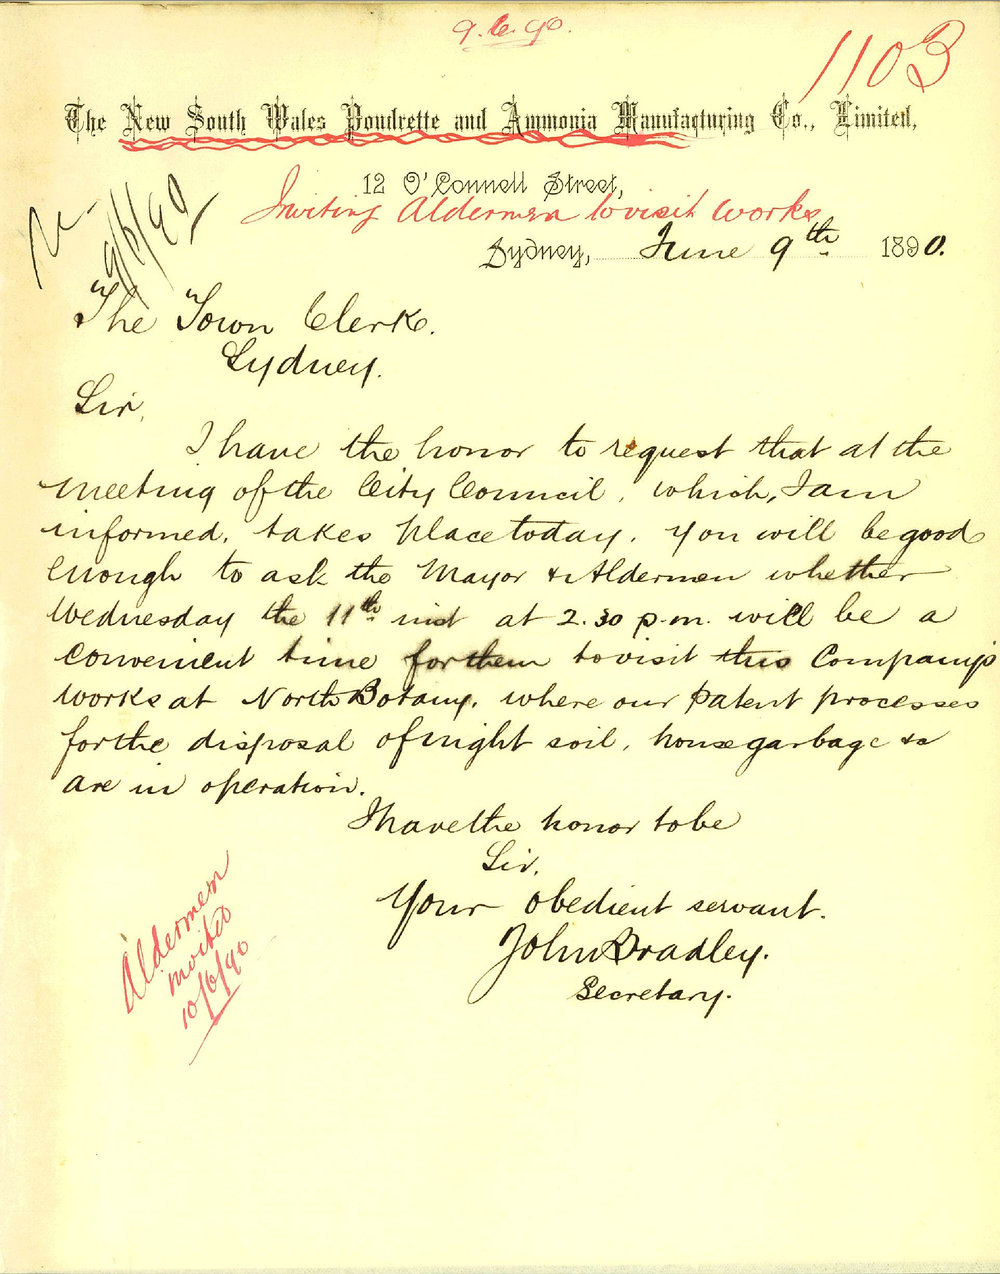 9.6.90.
1103
The New South Wales Poudrette and Ammonia Manufacturing Co., Limited,
12 O'Connell Street,
Inviting Aldermen to visit works
Sydney, June 9th 1890.
9/6/90
The Town Clerk.
Sydney.
Sir,
I have the honor to request that at the
meeting of the City Council, which, I am
informed, takes place today, you will be good
enough to ask the Mayor & Aldermen whether
Wednesday the 11th inst at 2.30 p.m. will be a
convenient time for them to visit this Company's
works at North Botany, where our patent processes
for the disposal of night soil, house garbage &c
are in operation.
I have the honor to be
Sir,
Your obedient servant.
John Bradley.
Secretary.
Aldermen
invited
10/6/90